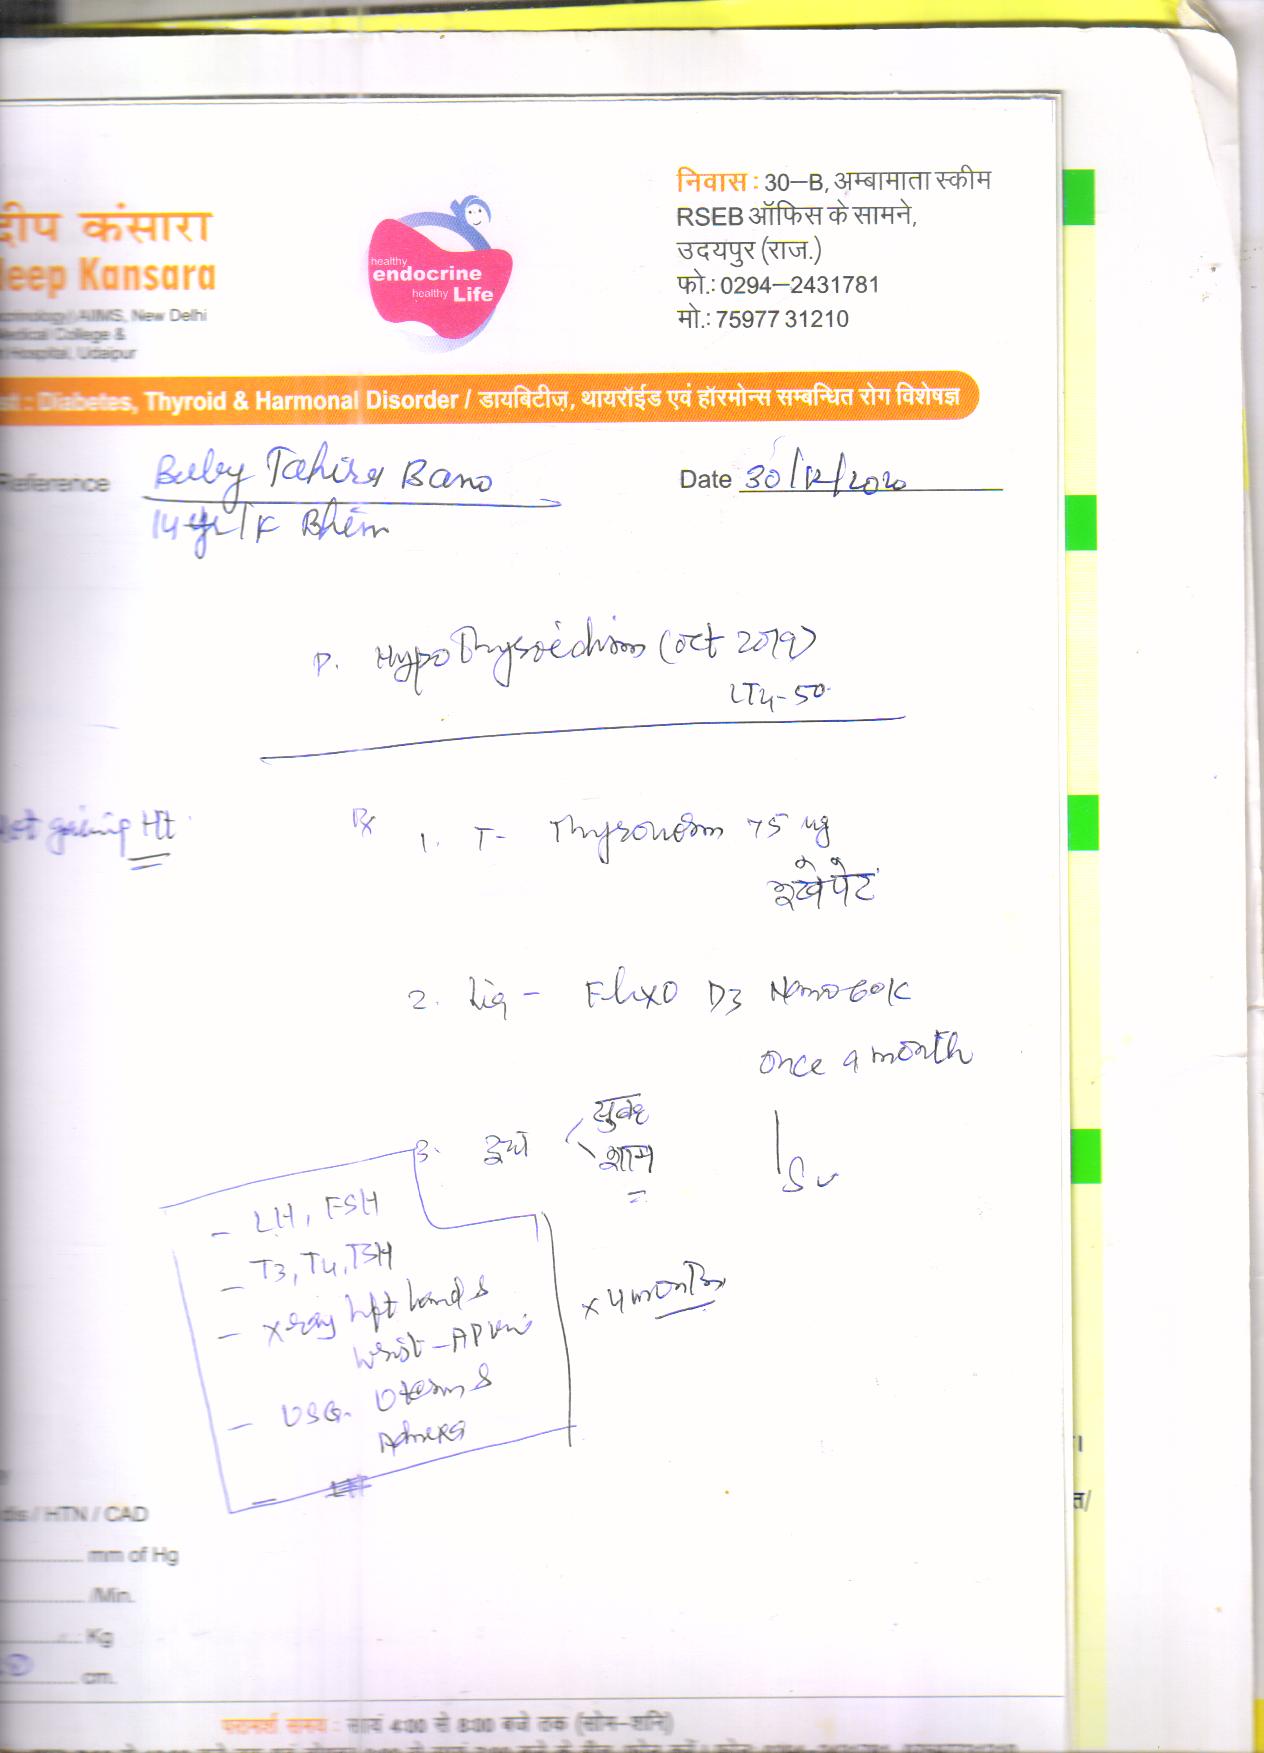 दीप कंसारा
deep Kansara
AIIMS, New Delhi
Medical College &
Hospital, Udaipur
healthy
endocrine
healthy Life
निवास : 30–B, अम्बामाता स्कीम
RSEB ऑफिस के सामने,
उदयपुर (राज.)
फो.: 0294–2431781
मो.: 75977 31210
: Diabetes, Thyroid & Harmonal Disorder / डायबिटीज़, थायरॉईड एवं हॉरमोन्स सम्बन्धित रोग विशेषज्ञ
Reference Baby Tahira Bano
Date 30/12/2020
14 yr/F Bhim
Hypothyroidism (Oct 2019)
LT4-50
Not gaining Ht
Rx 1. T- Thyronorm 75 ug
2. Liq - D3 Nano 60K
once a month
3. दूध
सुबह
शाम
- LH, FSH
- T3, T4, TSH
- Xray left hand &
wrist - AP view
- USG. Uterus &
Adnexa
x 4 months
/ HTN / CAD
mm of Hg
/Min.
Kg
cm.
परामर्श समय : सायं 4:00 से 8:00 बजे तक (सोम–शनि)